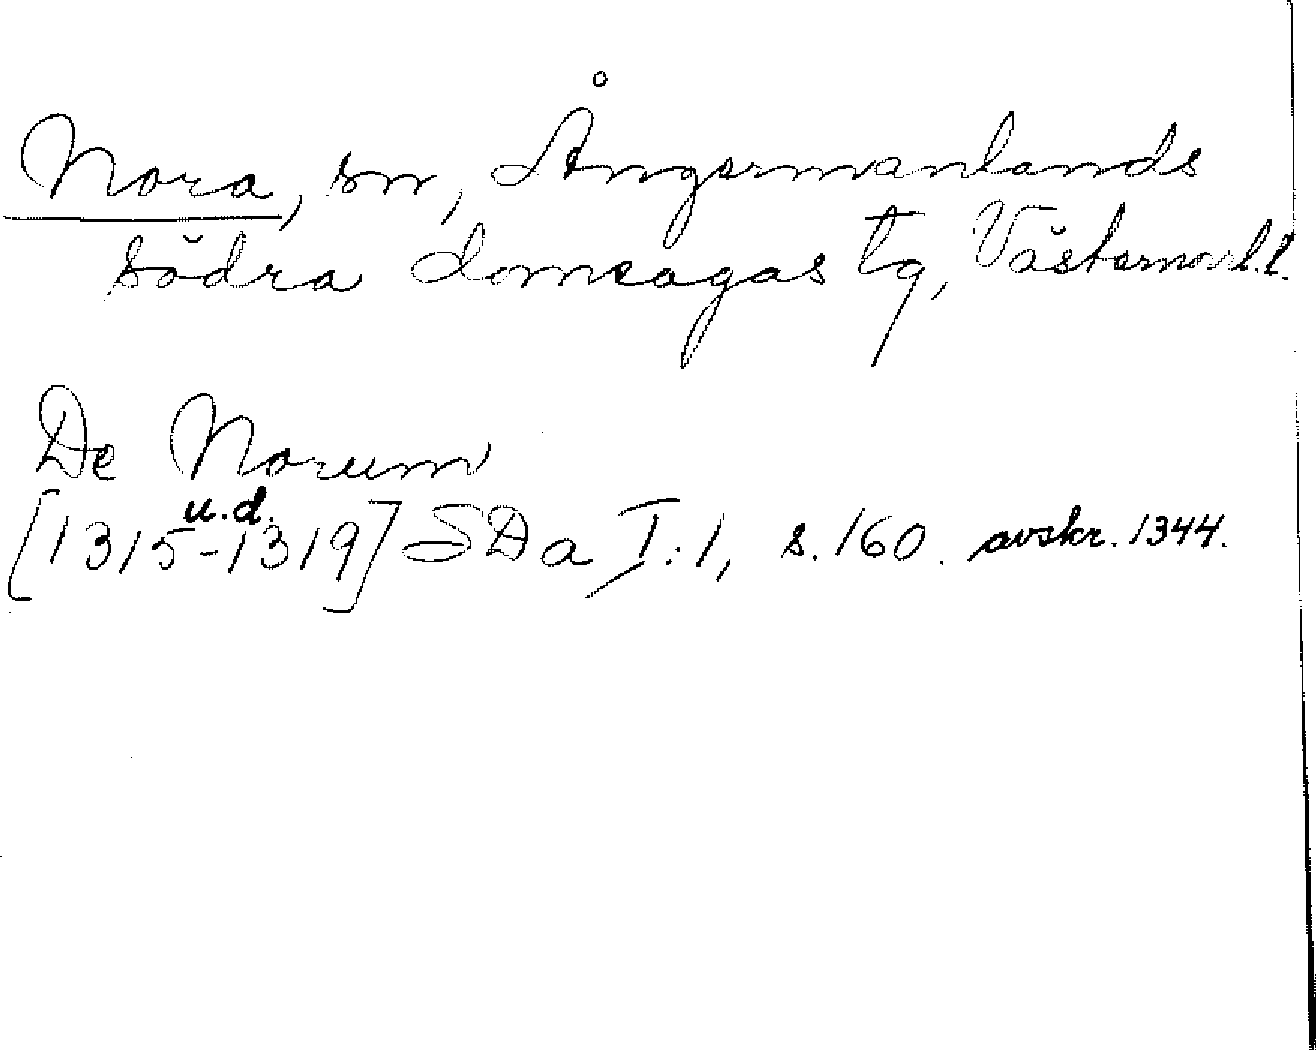 Nora, sn, Ångermanlands
södra domsagas tg, Västernorrl.l.
De Norum
u.d.
[1315-1319] SDa I:1, s. 160. avskr. 1344.